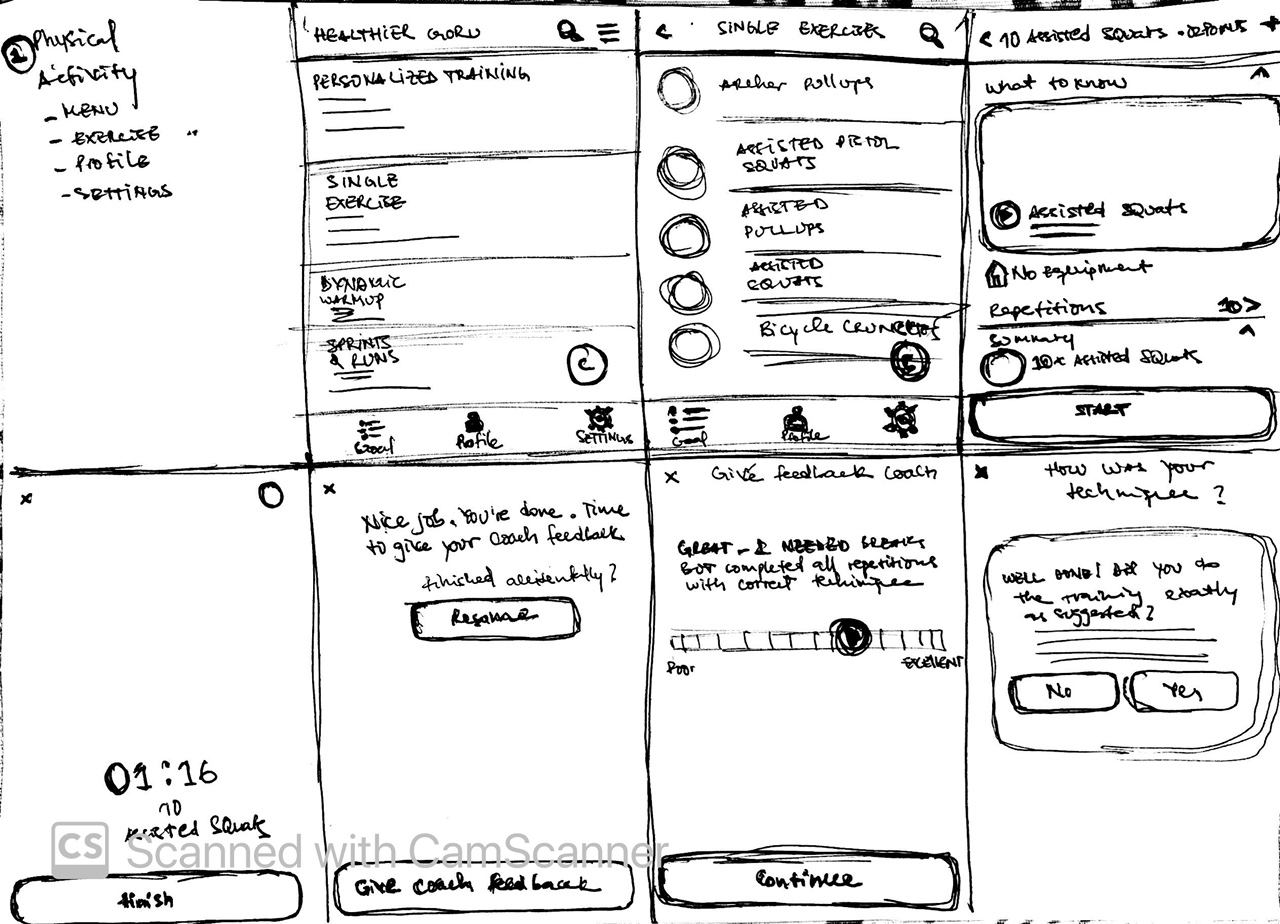 2
Physical
Activity
- MENU
- EXERCISE "
- Profile
- SETTINGS
HEALTHIER GORU
PERSONALIZED TRAINING
SINGLE
EXERCISE
DYNAMIC
WARMUP
SPRINTS
& RUNS
C
Goal
Profile
SETTINGS
< SINGLE EXERCISES
Archer Pullups
ASSISTED PISTOL
SQUATS
ASSISTED
PULLUPS
ASSISTED
SQUATS
Bicycle CRUNCHES
C
Goal
Profile
< 10 Assisted Squats +
what to know
Assisted Squats
No Equipment
Repetitions 10 >
Summary
10x Assisted Squats
START
x
01:16
10
Assisted Squats
finish
x
Nice job. You're done. Time
to give your coach feedback
finished accidentally?
Resume
Give coach feedback
x Give feedback coach
GREAT - I NEEDED BREAKS
BUT completed all repetitions
with correct technique
Poor
EXCELLENT
Continue
x How was your
technique?
WELL DONE! DID you do
the training exactly
as suggested?
No
Yes
CS Scanned with CamScanner